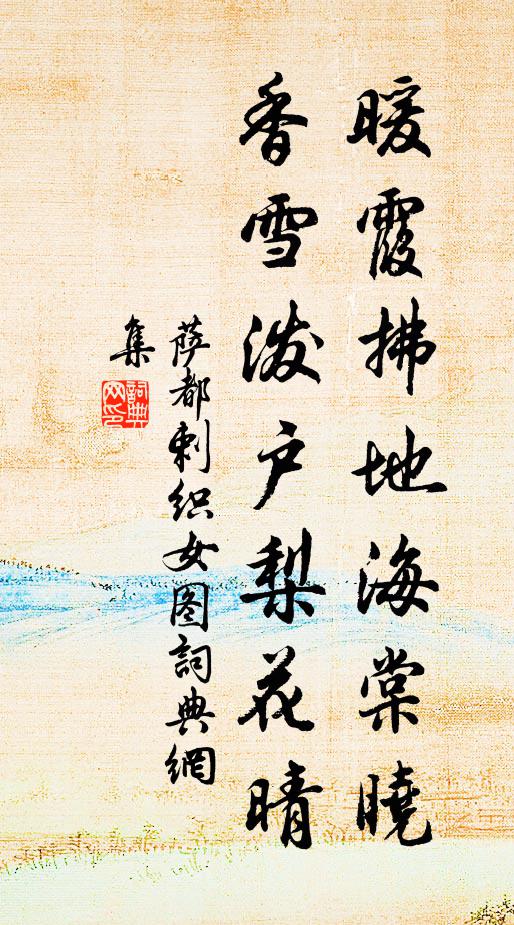 暖霞拂地海棠曉
香雪泼户梨花晴
萨都剌织女图詞典網
集
詞典
网印